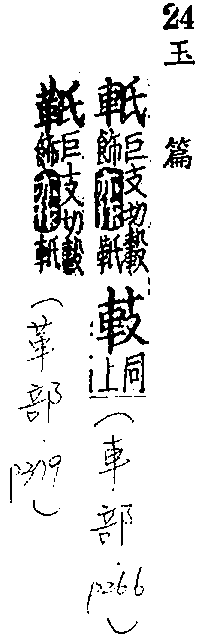 24 玉篇
軝 巨支切轂飾亦作
同上
(車部 p266)
巨支切轂飾亦作軝
(革部